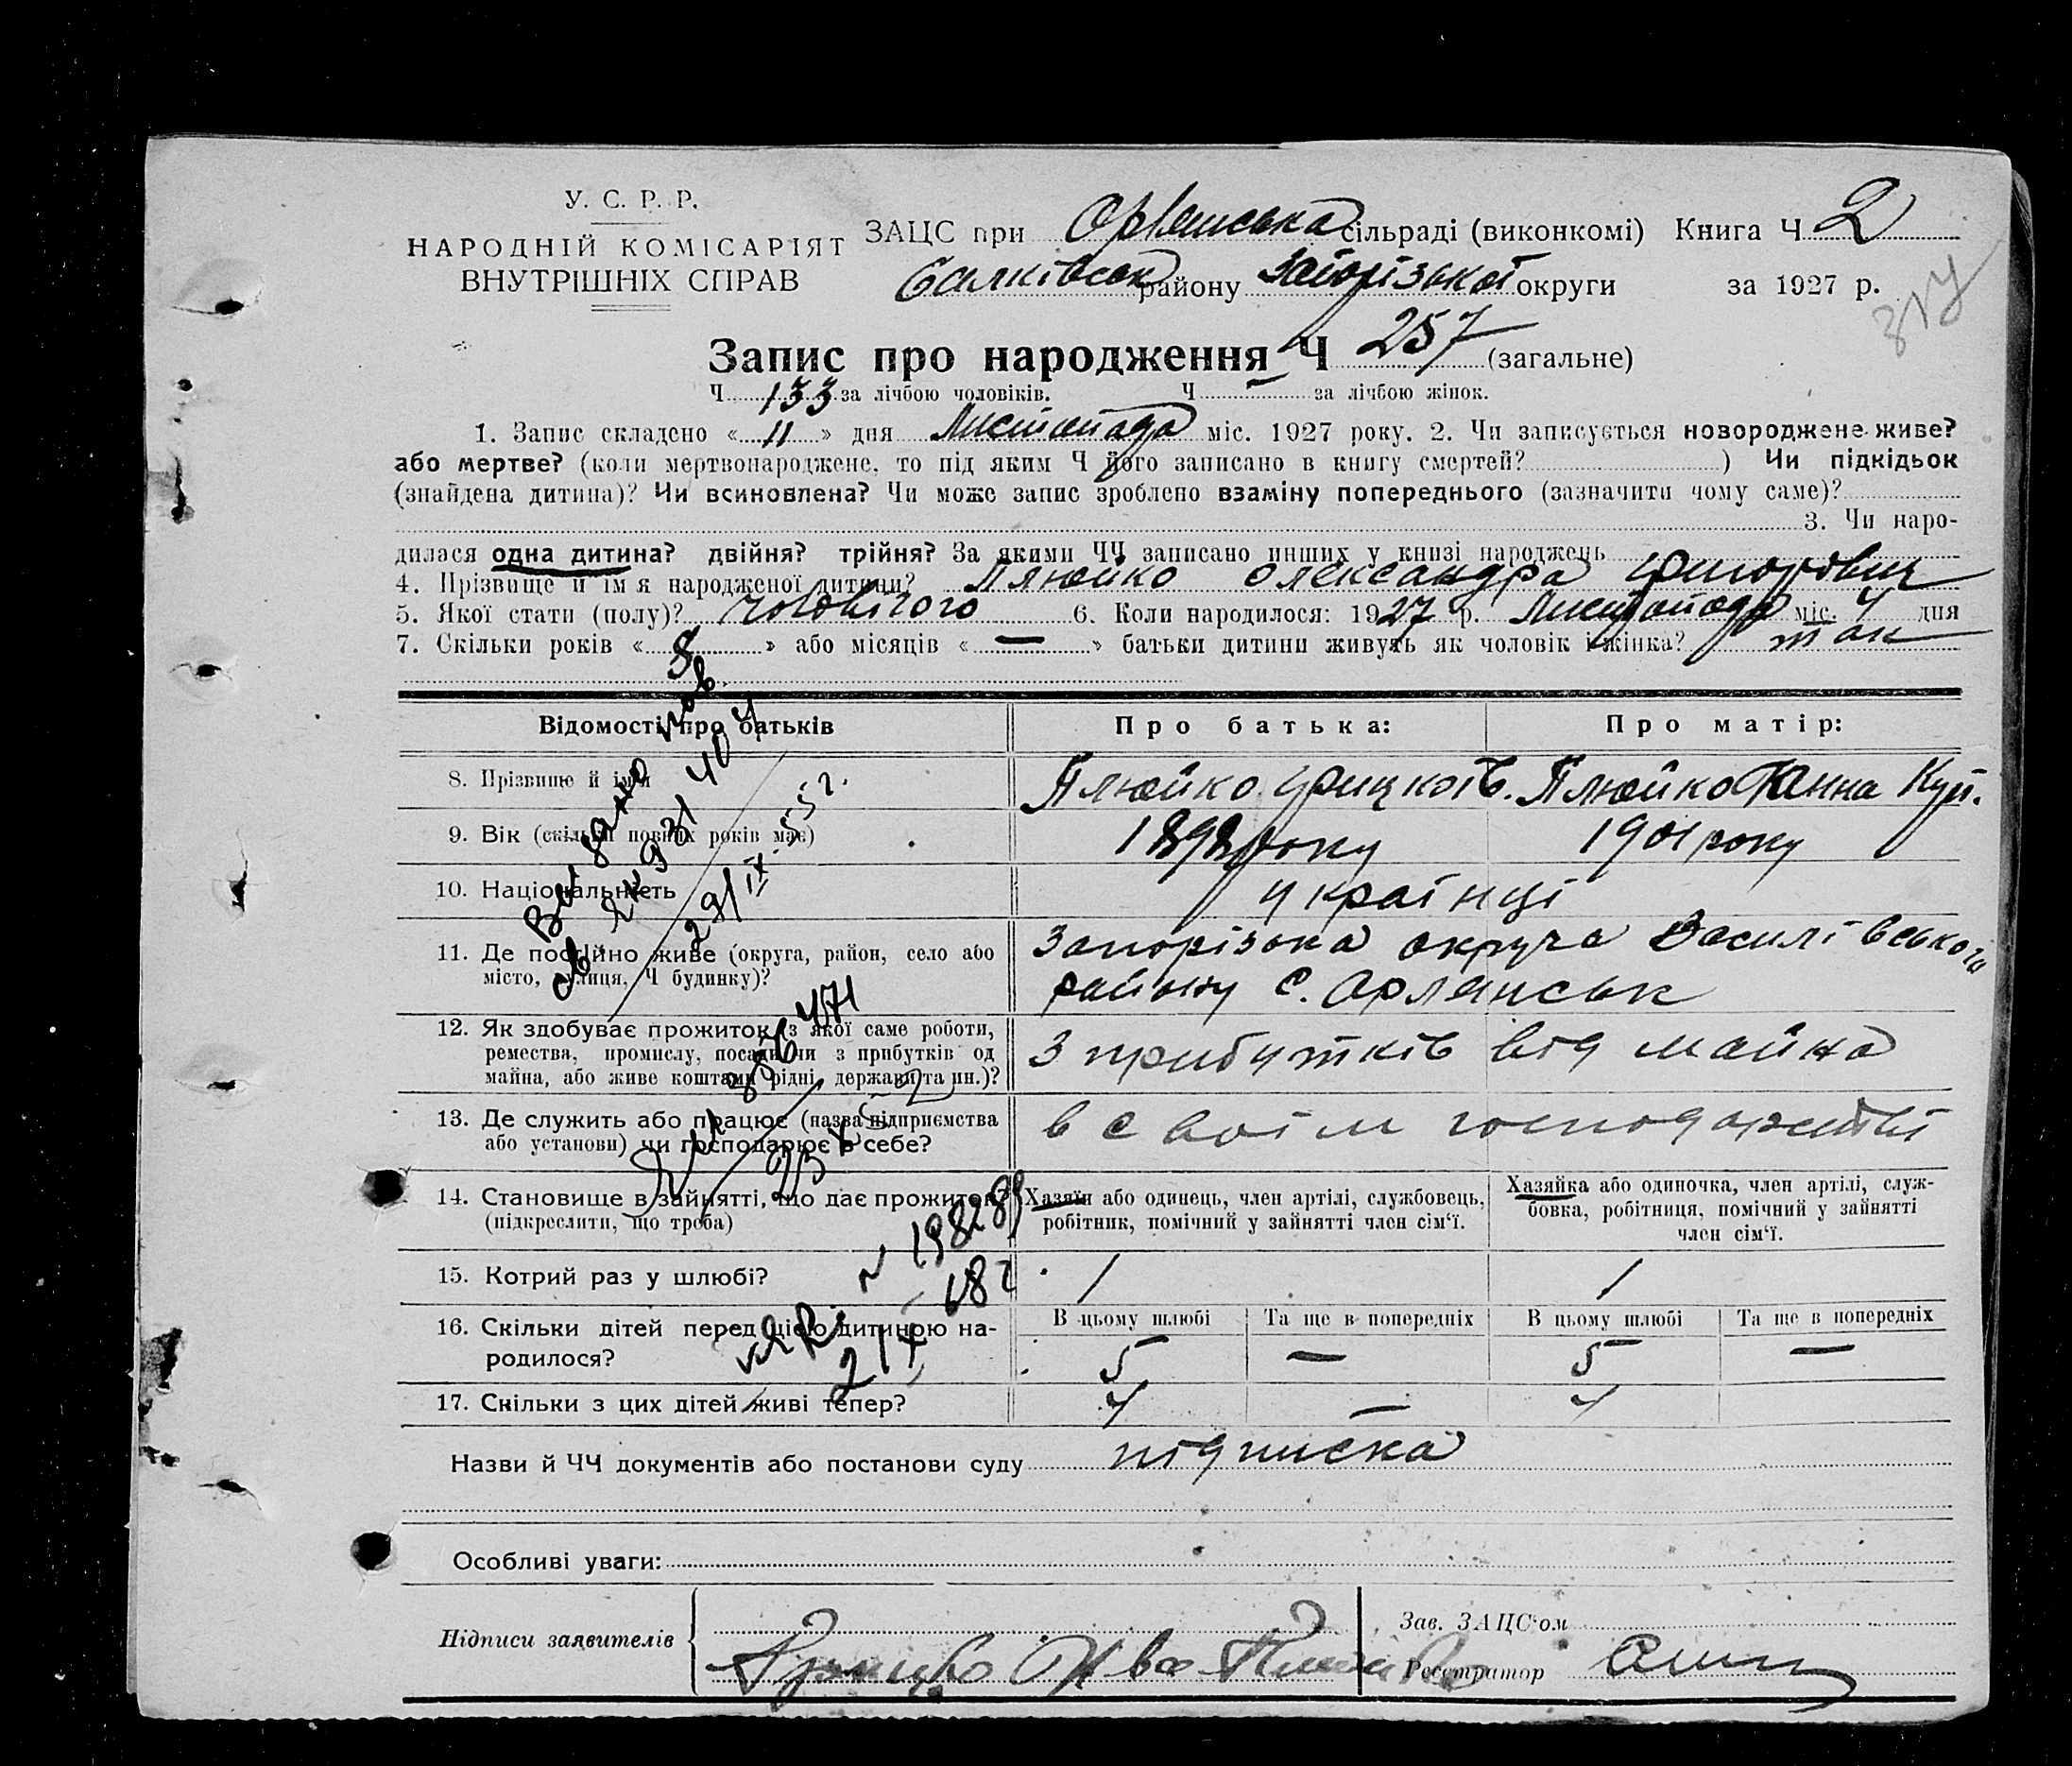 У. С. Р. Р.
НАРОДНІЙ КОМІСАРІЯТ
ВНУТРІШНІХ СПРАВ
ЗАЦС при Орлянська сільраді (виконкомі) Книга Ч 2
Балківськ району Запорізької округи за 1927 р.
Запис про народження Ч 257 (загальне)
Ч 133 за лічбою чоловіків. Ч — за лічбою жінок.
1. Запис складено « 11 » дня Листопада міс. 1927 року. 2. Чи записується новороджене живе?
або мертве? (коли мертвонароджене, то під яким Ч його записано в книгу смертей? ) Чи підкідьок
(знайдена дитина)? Чи всиновлена? Чи може запис зроблено взаміну попереднього (зазначити чому саме)?
3. Чи наро-
дилася одна дитина? двійня? трійня? За якими ЧЧ записано инших у книзі народжень
4. Прізвище й імя народженої дитини? Плюйко Олександра Григорович
5. Якої стати (полу)? чоловічого 6. Коли народилося: 1927 р. Листопада міс. 4 дня
7. Скільки років « 8 » або місяців « — » батьки дитини живуть як чоловік і жінка? так
Відомості про батьків Про батька: Про матір:
8. Прізвище й імя Плюйко Грицко Плюйко Ганна Куп.
9. Вік (скільки повних років має) 1898 року 1901 року
10. Національність українці
11. Де постійно живе (округа, район, село або
місто, вулиця, Ч будинку)? Запорізька округа Василівського
району с. Орлянськ
12. Як здобуває прожиток (з якої саме роботи,
ремества, промислу, посади чи з прибутків од
майна, або живе коштами рідні, держави та ин.)? З прибутків від майна
13. Де служить або працює (назва підприємства
або установи) чи господарює в себе? в своїм господарстві
14. Становище в зайнятті, що дає прожиток?
(підкреслити, що треба)
Хазяїн або одинець, член артілі, службовець,
робітник, помічний у зайнятті член сім'ї.
Хазяйка або одиночка, член артілі, служ-
бовка, робітниця, помічний у зайнятті
член сім'ї.
15. Котрий раз у шлюбі? 1 1
16. Скільки дітей перед цією дитиною на-
родилося?
В цьому шлюбі Та ще в попередніх В цьому шлюбі Та ще в попередніх
5 — 5 —
17. Скільки з цих дітей живі тепер? 4 — 4
Назви й ЧЧ документів або постанови суду підписка
Особливі уваги:
Підписи заявителів
Зав. ЗАЦС'ом
Реєстратор
Видано пов.